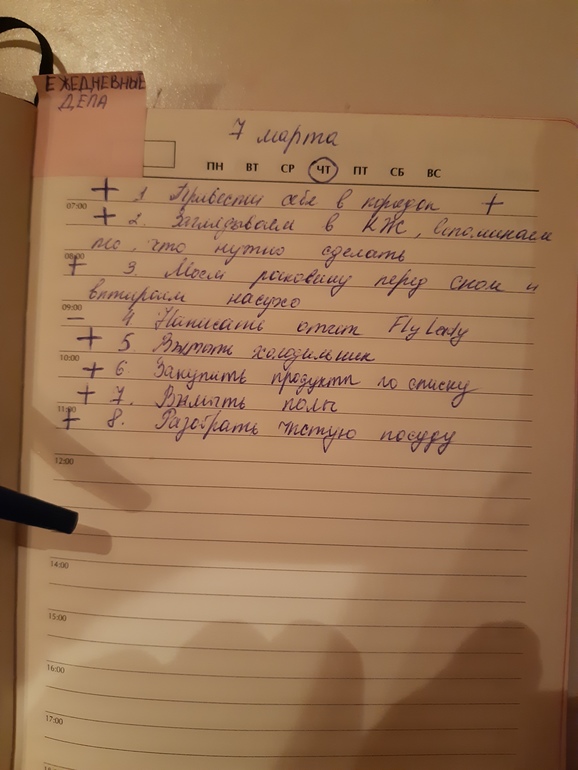 ЕЖЕДНЕВНЫЕ
ДЕЛА
7 марта
ПН ВТ СР ЧТ ПТ СБ ВС
+ 1 Привести себя в порядок +
07:00
+ 2. Заглядываем в КЖ, вспоминаем
то, что нужно сделать
08:00
+ 3. Моем раковину перед сном и
вытираем насухо
09:00
– 4. Написать отчёт Fly Lady
+ 5 Вымыть холодильник
10:00
+ 6. Закупить продукты по списку
+ 7. Вымыть полы
11:00
+ 8. Разобрать чистую посуду
12:00
14:00
15:00
16:00
17:00